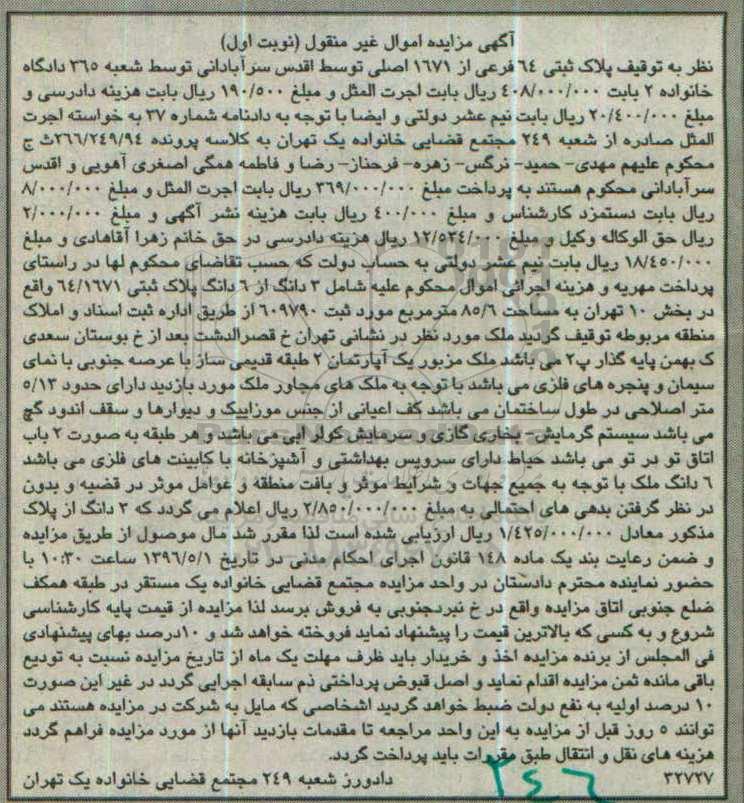 آگهی مزایده اموال غیر منقول (نوبت اول)
نظر به توقیف پلاک ثبتی ٦٤ فرعی از ١٦٧١ اصلی توسط اقدس سرآبادانی توسط شعبه ٢٦٥ دادگاه
خانواده ٢ بابت ٤٠٨/٠٠٠/٠٠٠ ریال بابت اجرت المثل و مبلغ ١٩٠/٥٠٠ ریال بابت هزینه دادرسی و
مبلغ ٢٠/٤٠٠/٠٠٠ ریال بابت نیم عشر دولتی و ایضا با توجه به دادنامه شماره ٣٧ به خواسته اجرت
المثل صادره از شعبه ٢٤٩ مجتمع قضایی خانواده یک تهران به کلاسه پرونده ٢٦٦/٢٤٩/٩٤ث ج
محکوم علیهم مهدی- حمید- نرگس- زهره- فرحناز- رضا و فاطمه همگی اصغری آهویی و اقدس
سرآبادانی محکوم هستند به پرداخت مبلغ ٣٦٩/٠٠٠/٠٠٠ ریال بابت اجرت المثل و مبلغ ٨/٠٠٠/٠٠٠
ریال بابت دستمزد کارشناس و مبلغ ٤٠٠/٠٠٠ ریال بابت هزینه نشر آگهی و مبلغ ٢/٠٠٠/٠٠٠
ریال حق الوکاله وکیل و مبلغ ١٢/٥٣٤/٠٠٠ ریال هزینه دادرسی در حق خانم زهرا آقاهادی و مبلغ
١٨/٤٥٠/٠٠٠ ریال بابت نیم عشر دولتی به حساب دولت که حسب تقاضای محکوم لها در راستای
پرداخت مهریه و هزینه اجرائی اموال محکوم علیه شامل ٣ دانگ از ٦ دانگ پلاک ثبتی ٦٤/١٦٧١ واقع
در بخش ١٠ تهران به مساحت ٨٥/٦ مترمربع مورد ثبت ٦٠٩٧٩٠ از طریق اداره ثبت اسناد و املاک
منطقه مربوطه توقیف گردید ملک مورد نظر در نشانی تهران خ قصرالدشت بعد از خ بوستان سعدی
ک بهمن پایه گذار پ٢ می باشد ملک مزبور یک آپارتمان ٢ طبقه قدیمی ساز با عرصه جنوبی با نمای
سیمان و پنجره های فلزی می باشد با توجه به ملک های مجاور ملک مورد بازدید دارای حدود ٥/١٣
متر اصلاحی در طول ساختمان می باشد کف اعیانی از جنس موزاییک و دیوارها و سقف اندود گچ
می باشد سیستم گرمایش- بخاری گازی و سرمایش کولر ابی می باشد و هر طبقه به صورت ٢ باب
اتاق تو در تو می باشد حیاط دارای سرویس بهداشتی و آشپزخانه با کابینت های فلزی می باشد
٦ دانگ ملک با توجه به جمیع جهات و شرایط موثر و بافت منطقه و عوامل موثر در قضیه و بدون
در نظر گرفتن بدهی های احتمالی به مبلغ ٢/٨٥٠/٠٠٠/٠٠٠ ریال اعلام می گردد که ٣ دانگ از پلاک
مذکور معادل ١/٤٢٥/٠٠٠/٠٠٠ ریال ارزیابی شده است لذا مقرر شد مال موصول از طریق مزایده
و ضمن رعایت بند یک ماده ١٤٨ قانون اجرای احکام مدنی در تاریخ ١٣٩٦/٥/١ ساعت ١٠:٣٠ با
حضور نماینده محترم دادستان در واحد مزایده مجتمع قضایی خانواده یک مستقر در طبقه همکف
ضلع جنوبی اتاق مزایده واقع در خ نبردجنوبی به فروش برسد لذا مزایده از قیمت پایه کارشناسی
شروع و به کسی که بالاترین قیمت را پیشنهاد نماید فروخته خواهد شد و ١٠درصد بهای پیشنهادی
فی المجلس از برنده مزایده اخذ و خریدار باید ظرف مهلت یک ماه از تاریخ مزایده نسبت به تودیع
باقی مانده ثمن مزایده اقدام نماید و اصل قبوض پرداختی ذم سابقه اجرایی گردد در غیر این صورت
١٠ درصد اولیه به نفع دولت ضبط خواهد گردید اشخاصی که مایل به شرکت در مزایده هستند می
توانند ٥ روز قبل از مزایده به این واحد مراجعه تا مقدمات بازدید آنها از مورد مزایده فراهم گردد
هزینه های نقل و انتقال طبق مقررات باید پرداخت گردد.
٣٢٧٢٧ دادورز شعبه ٢٤٩ مجتمع قضایی خانواده یک تهران
٢٤٦